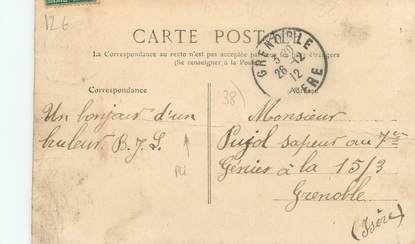 12 6
CARTE POSTALE
La Correspondance au recto n'est pas acceptée par étrangers
(Se renseigner à la Poste)
GRENOBLE
26-12
12
ISERE
Correspondance
Adresse
38)
Un bonjour d'un
B. J. L.
PLI
Monsieur
Pujol sapeur au 7me
Génies à la 15/3
Grenoble
(Isère)